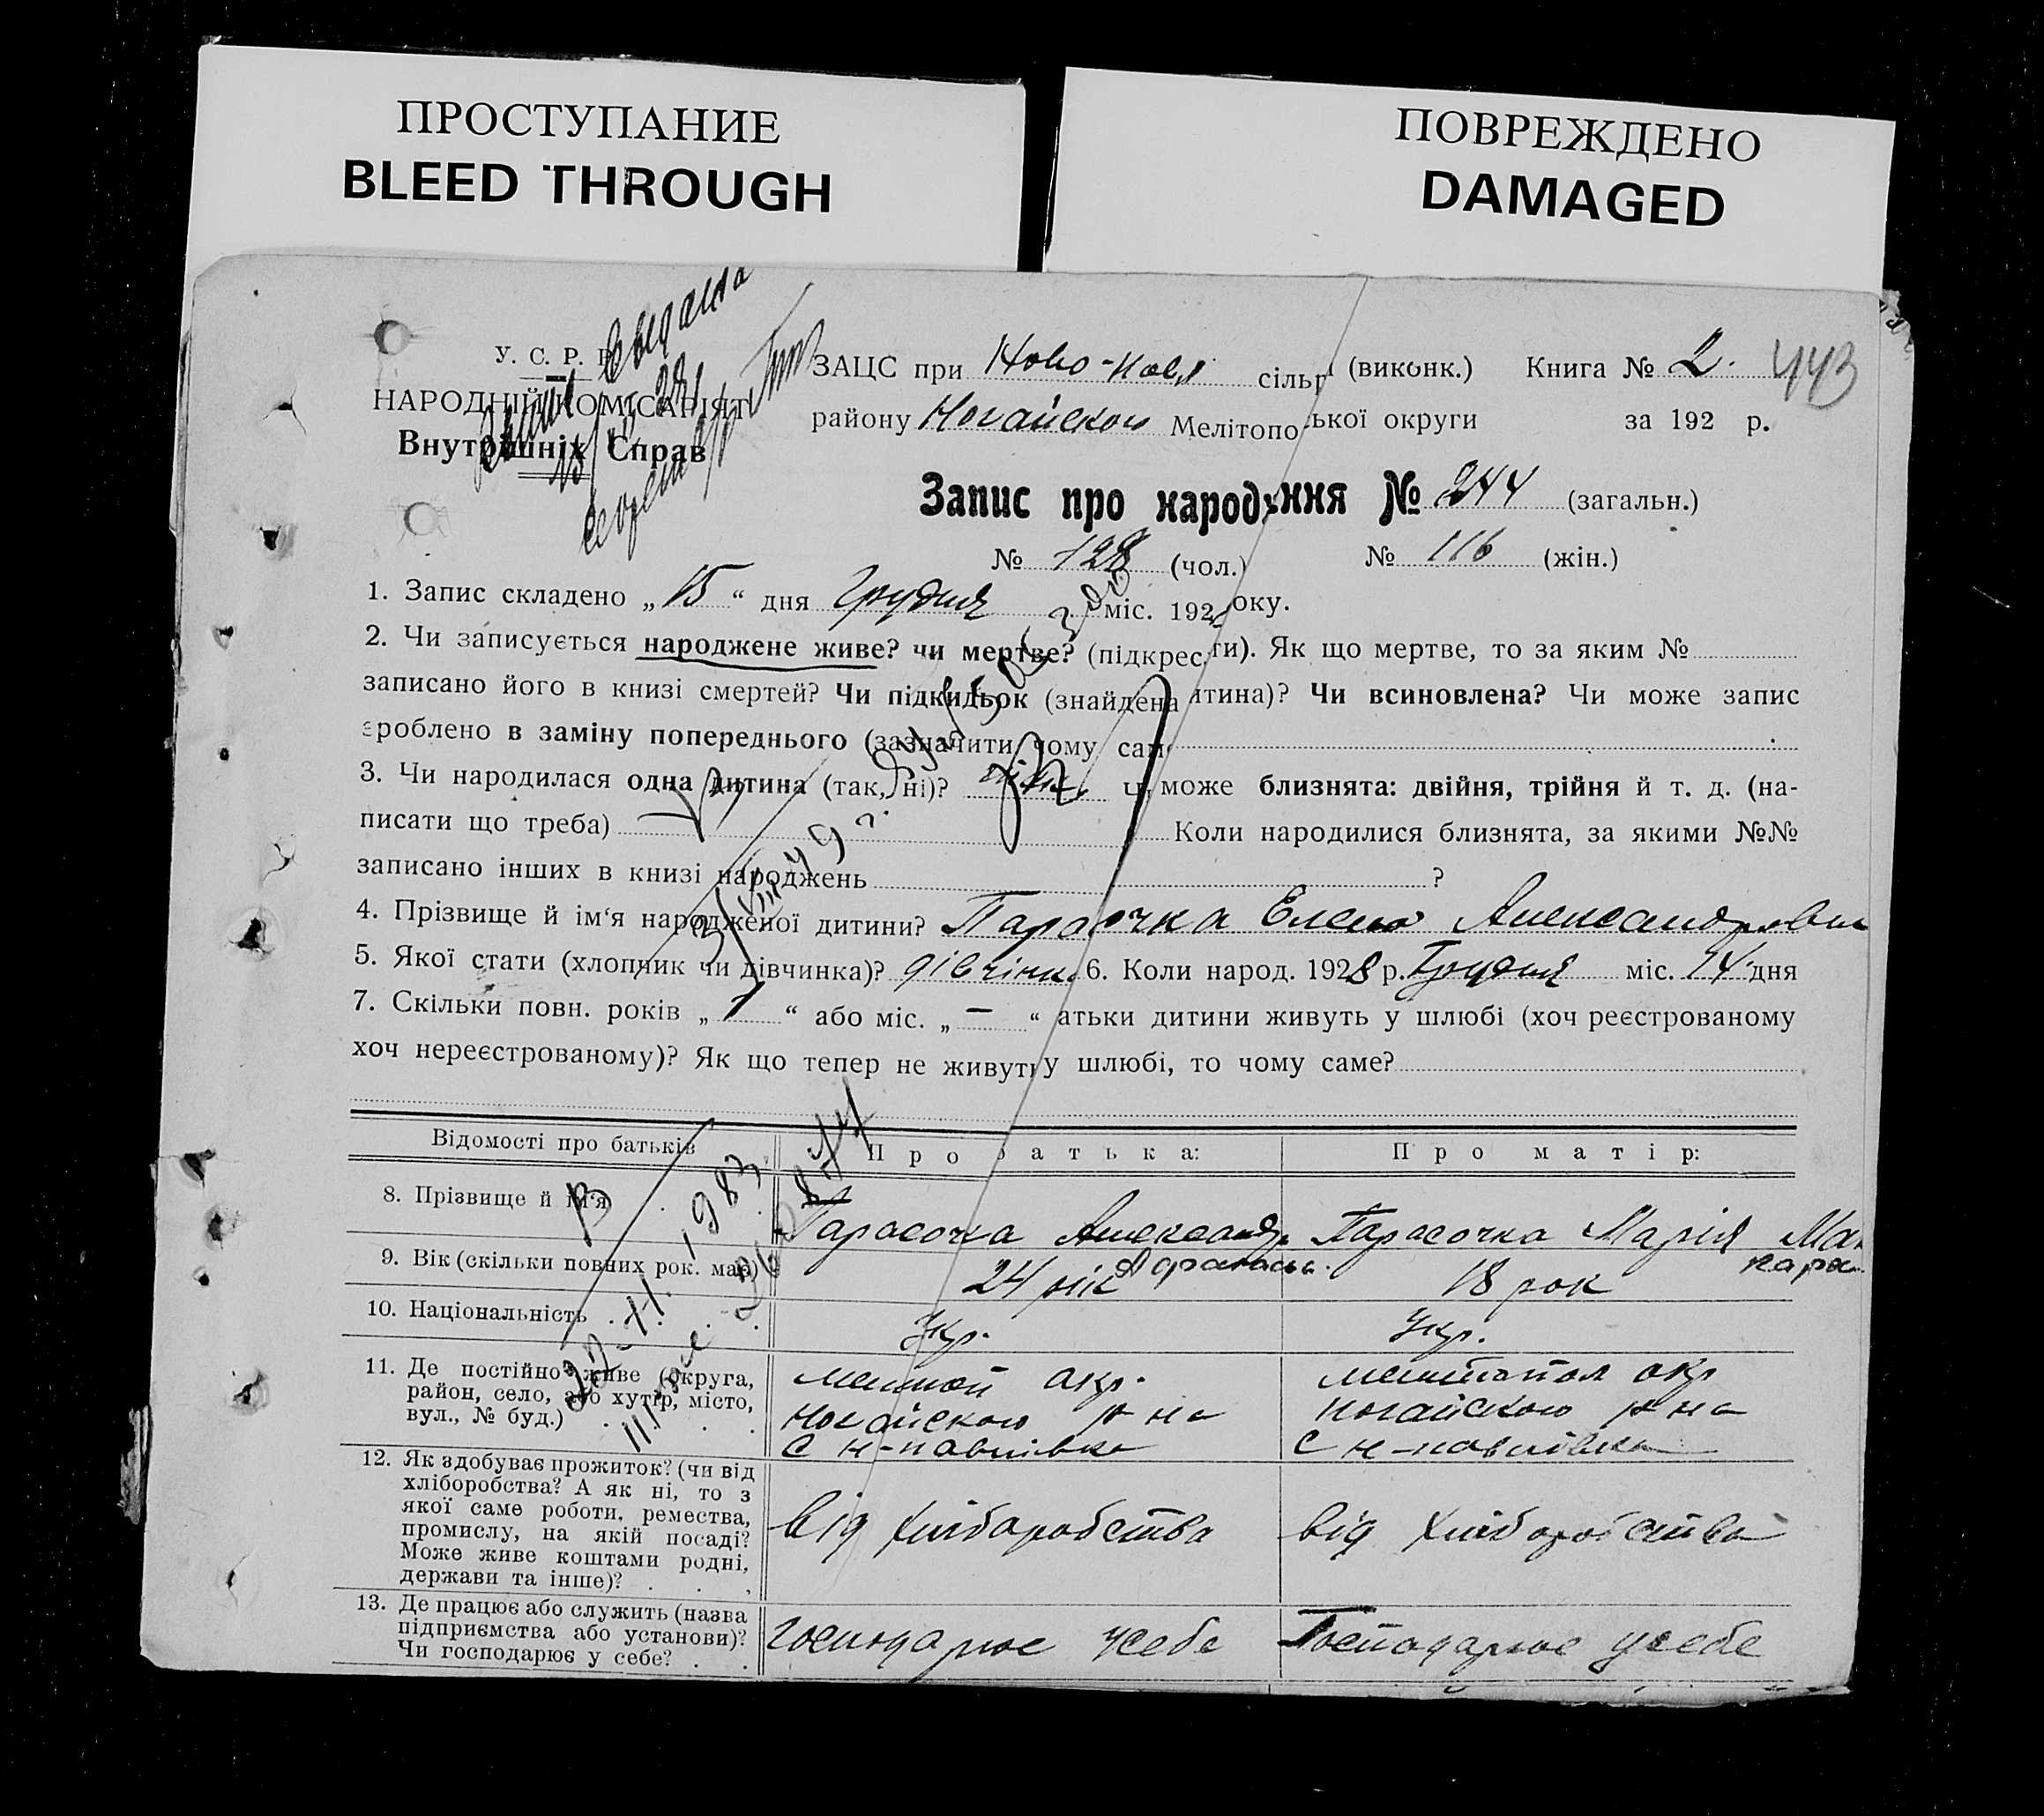 ПРОСТУПАНИЕ
BLEED THROUGH
ПОВРЕЖДЕНО
DAMAGED
У. С. Р. Р.
НАРОДНІЙ КОМІСАРІЯТ
Внутрішніх Справ
ЗАЦС при Ново-Павл сільр (виконк.) Книга № 2. 443
району Ногайского Мелітопо ької округи за 192 р.
Запис про народ ння № 244 (загальн.)
№ 128 (чол.) № 116 (жін.)
1. Запис складено „15“ дня Грудня міс. 192 оку.
2. Чи записується народжене живе? чи мертве? (підкрес ти). Як що мертве, то за яким №
записано його в книзі смертей? Чи підкидьок (знайдена итина)? Чи всиновлена? Чи може запис
зроблено в заміну попереднього (зазначити, чому сам
3. Чи народилася одна дитина (так, ні)? Ч може близнята: двійня, трійня й т. д. (на-
писати що треба) Коли народилися близнята, за якими №№
записано інших в книзі народжень ?
4. Прізвище й ім‘я народженої дитини? Парасочка Елена Александровна
5. Якої стати (хлопчик чи дівчинка)? дівчінка 6. Коли народ. 1928 р. Грудня міс. 14 дня
7. Скільки повн. років „1“ або міс. „—“ атьки дитини живуть у шлюбі (хоч реєстрованому
хоч нереєстрованому)? Як що тепер не живут у шлюбі, то чому саме?
Відомості про батьків Про батька: Про матір:
8. Прізвище й ім‘я Парасочка Александр Парасочка Марія
9. Вік (скільки повних рок. має) 24 рік 18 рок
10. Національність Укр. Укр.
11. Де постійно живе (округа, район, село, або хутір, місто, вул., № буд.)
Мелитоп окр. Мелитопол окр
Ногайского р на Ногайского р на
С Н-Павлівка С Н-Павлівка
12. Як здобуває прожиток? (чи від
хліборобства? А як ні, то з
якої саме роботи, ремества,
промислу, на якій посаді?
Може живе коштами родні,
держави та інше)?
від хліборобства від хліборобства
13. Де працює або служить (назва
підприємства або установи)?
Чи господарює у себе?
Господарює усебе Господарює усебе